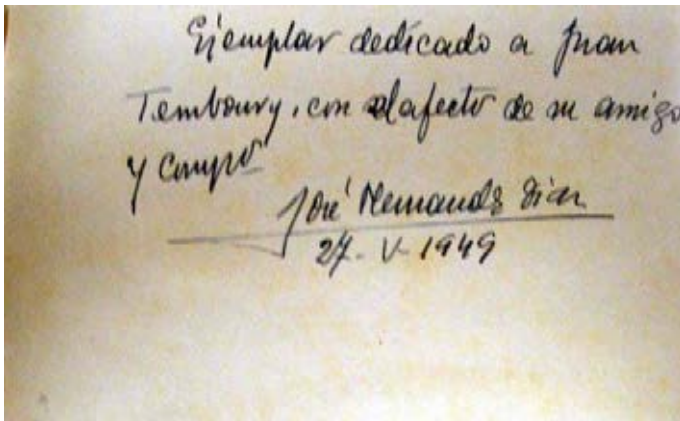 Ejemplar dedicado a Juan
Temboury, con el afecto de su amigo
y compº
José Hernandz Diaz
27-V-1949